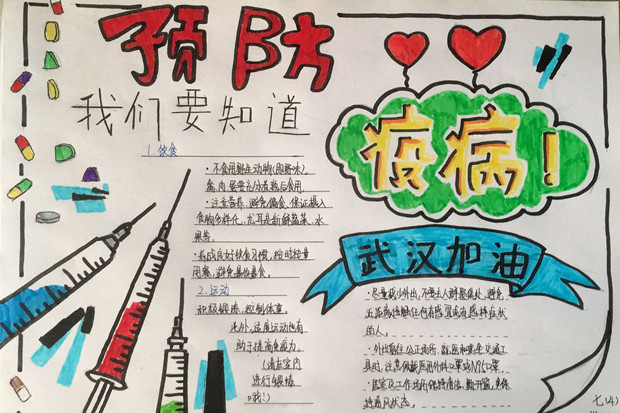 预防
疫病!
我们要知道
1.饮食
·不食用野生动物(即野味),
禽、肉、蛋要充分煮熟后食用
·注意营养,避免偏食,保证摄入
食物多样化,尤其是新鲜蔬菜、水
果等。
·养成良好饮食习惯,按时按量
用餐,避免暴饮暴食。
2.运动
积极锻炼,控制体重。
此外,适度运动也有
助于提高免疫力。
(请在室内
进行锻炼
哦!)
武汉加油
·尽量减少外出,不要去人群聚集处,避免
近距离接触任何有感冒或有感冒症状
的人。
·外出前往公共场所、就医和乘坐交通工
具时,注意佩戴医用外科口罩或N95口罩。
·居家及工作场所保持清洁,勤开窗,
通风状态。
七(4)